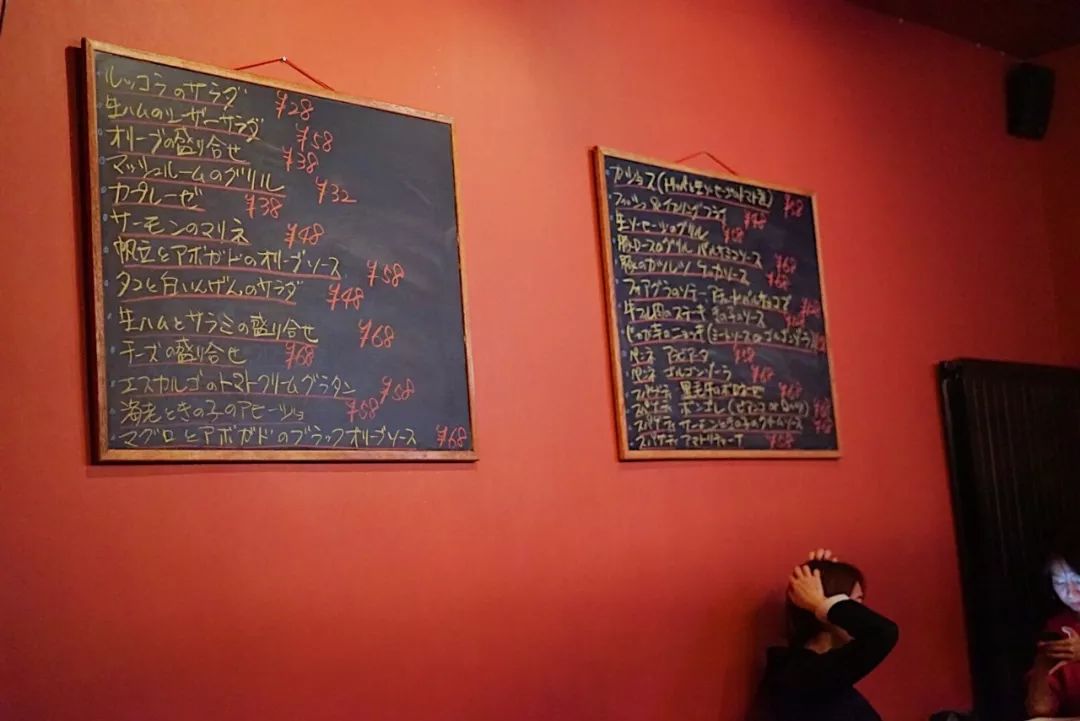 ルッコラのサラダ ¥28
生ハムのシーザーサラダ ¥58
オリーブの盛り合せ ¥38
マッシュルームのグリル ¥32
カポナータ ¥38
サーモンのマリネ ¥48
帆立とアボガドのオリーブソース ¥58
タコと白いんげんのサラダ ¥48
生ハムとサラミの盛り合せ ¥68
チーズの盛り合せ ¥68
エスカルゴのトマトクリームグラタン ¥58
海老ときの子のアヒージョ ¥58
マグロとアボガドのブラックオリーブソース ¥68
フィッシュ&
生ソーセージのグリル ¥58
豚ロースのグリル バルサミコソース ¥68
豚のカツレツ ¥68
フォアグラのソテー
牛フィレ肉のステーキ きの子のソース
じゃが芋のニョッキ(ミートソース or ゴルゴンゾーラ)
ペンネ アラビアータ ¥58
ペンネ ゴルゴンゾーラ ¥68
スパゲティ 黒毛牛のボロネーゼ ¥68
スパゲティ ボンゴレ (ビアンコ or ロッソ) ¥68
スパゲティ サーモンときの子のクリームソース ¥68
スパゲティ アマトリチャーナ ¥58